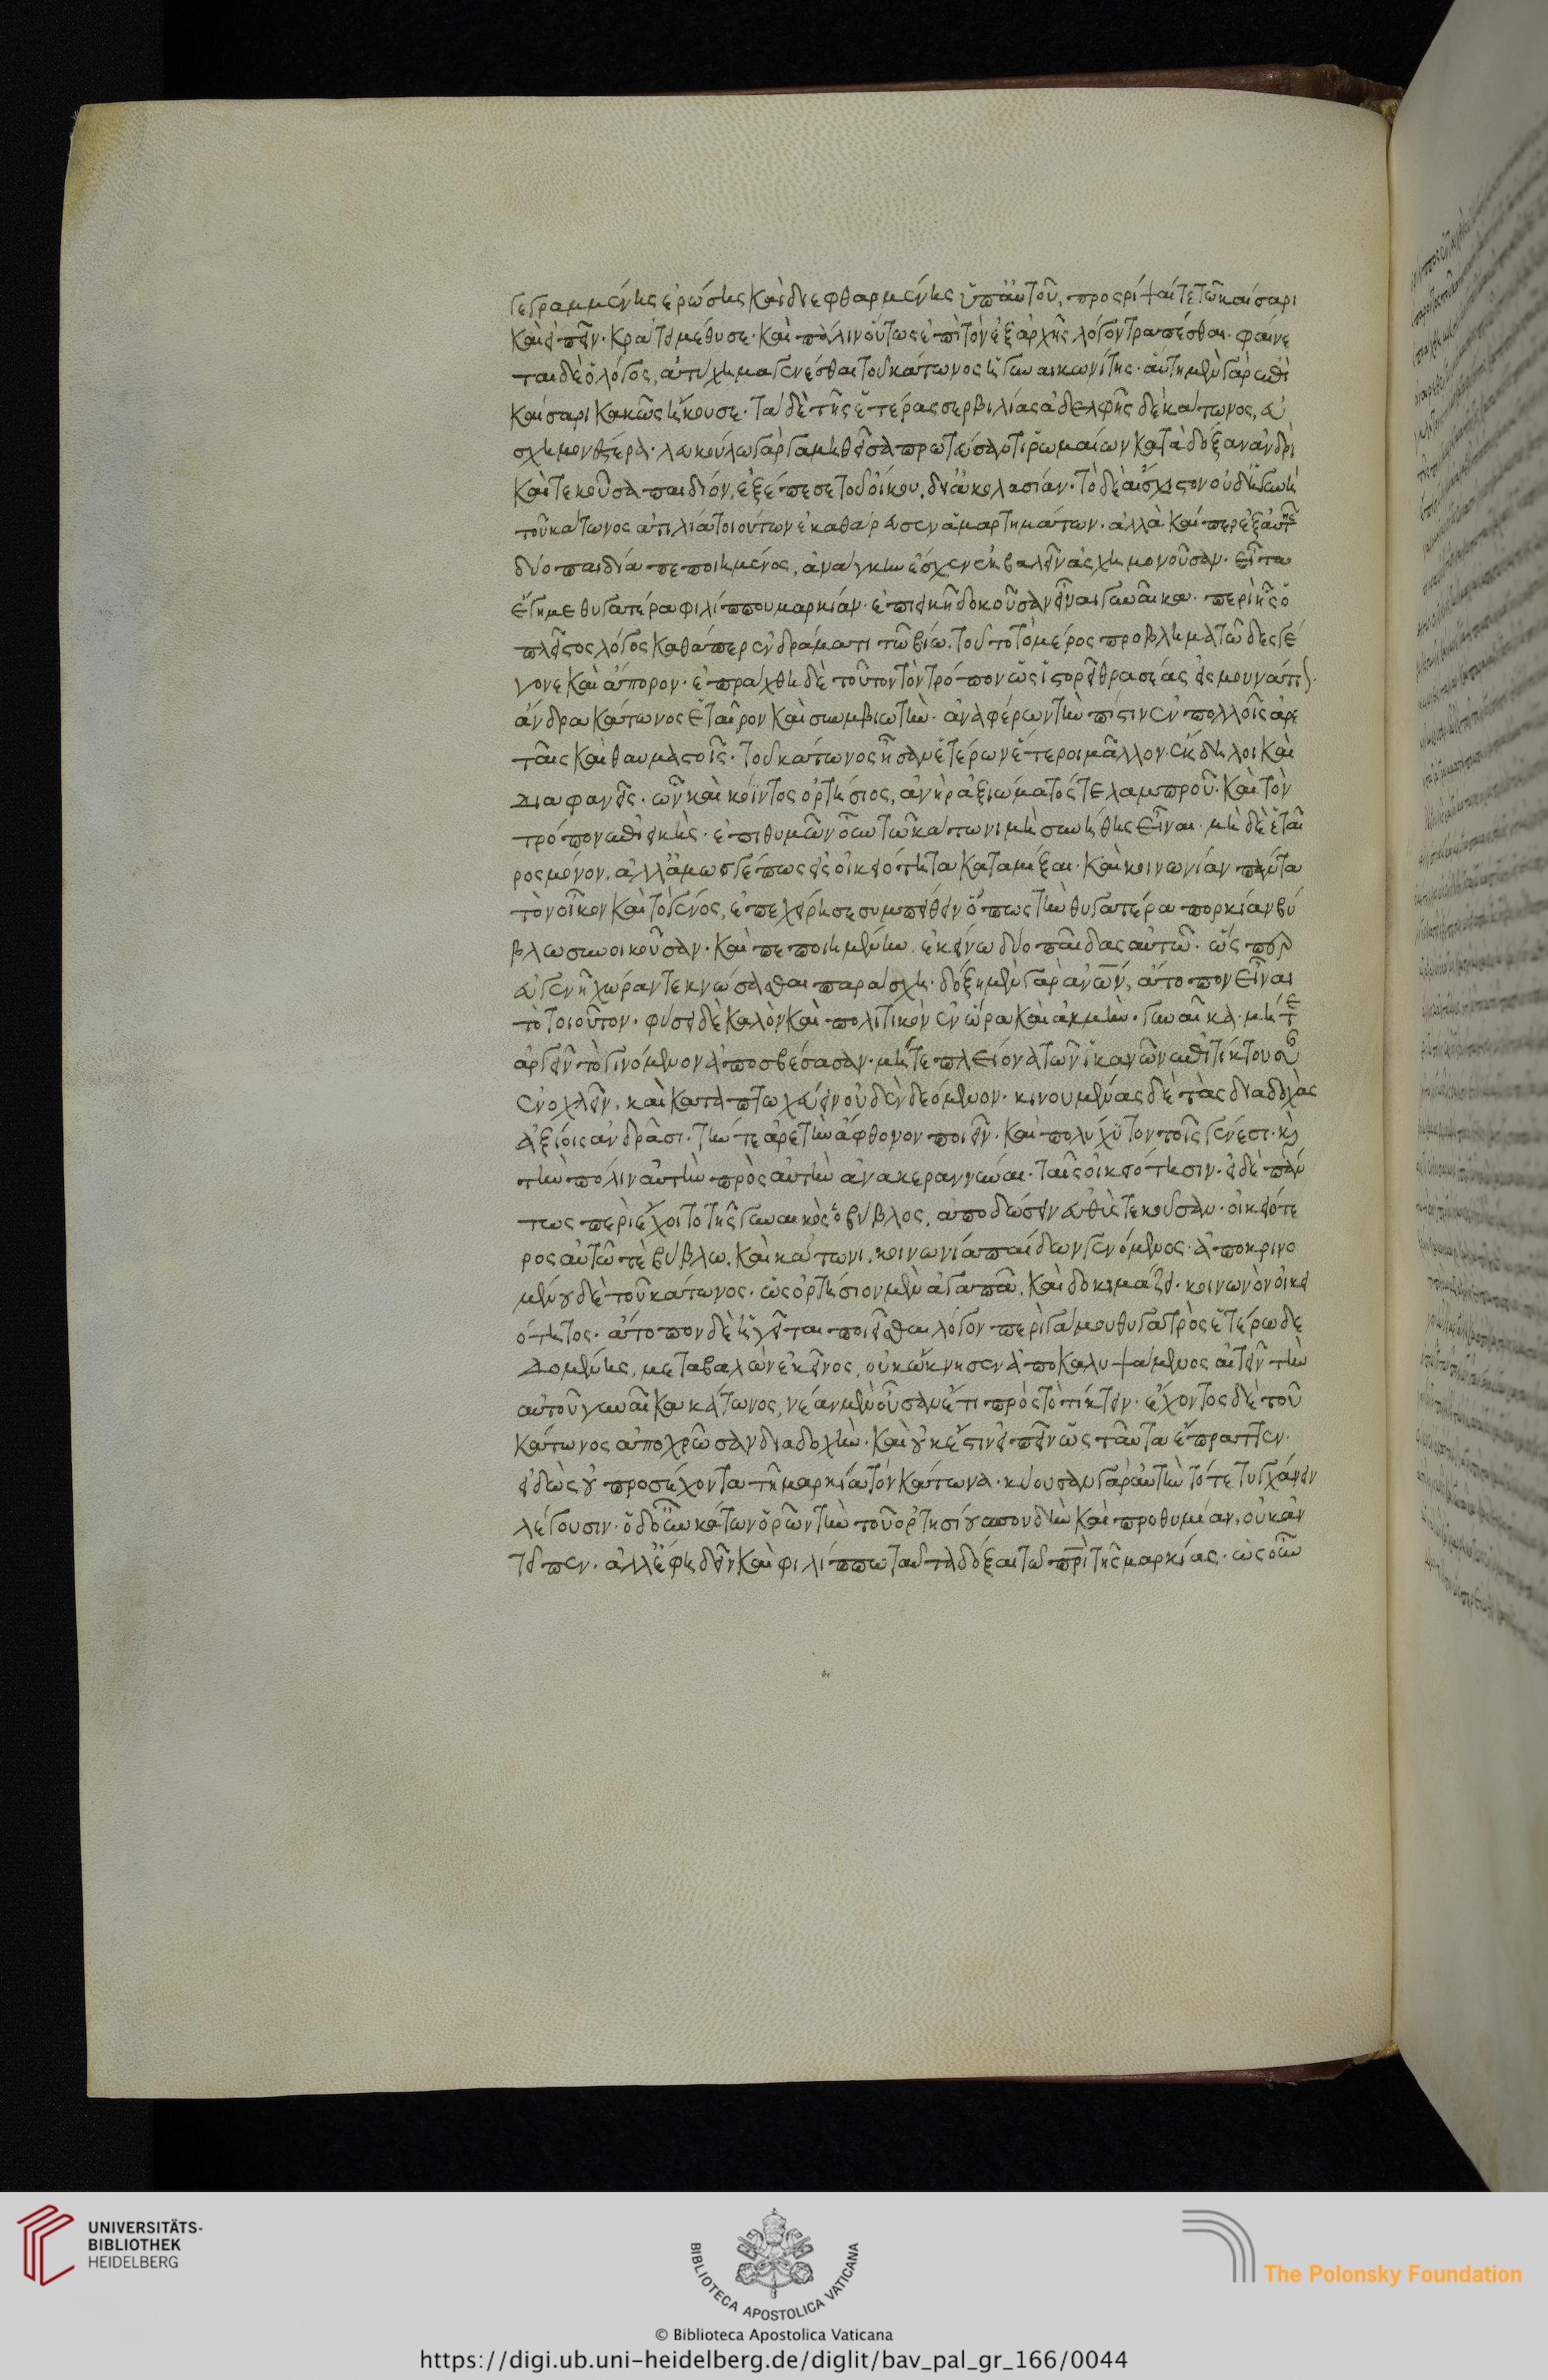 γεγραμμένης ἐρώσης καὶ διεφθαρμένης ὑπ' αὐτοῦ, προσρίψαί τε τῶ καίσαρι
καὶ εἰπεῖν· κράτει μέθυσε· καὶ πάλιν οὕτως ἐπὶ τὸν ἐξ ἀρχῆς λόγον τραπέσθαι· φαίνε
ται δὲ ὅλος, ἀτύχημα γενέσθαι τοῦ κάτωνος ἡ γυναικωνίτης· αὕτη μὲν γὰρ ἐπὶ
καίσαρι κακῶς ἤκουσε· τὰ δὲ τῆς ἑτέρας σερβιλίας ἀδελφῆς δὲ κάτωνος, ἀ
σχημονέστερα· λευκούλω γὰρ γαμηθεῖσα πρωτεύσαντι ῥωμαίων κατὰ δόξαν ἀνδρὶ
καὶ τεκοῦσα παιδίον, ἐξέπεσε τοῦ οἴκου, δι' ἀκολασίαν· τὸ δὲ αἴσχιστον οὐδ' ἡ γυνὴ
τοῦ κάτωνος ἀτιλία τοιούτων ἐκαθάρευσεν ἁμαρτημάτων· ἀλλὰ καίπερ ἐξ αὐτῆς
δύο παιδία πεποιημένος, ἀνάγκην ἔσχεν ἐκβαλεῖν ἀσχημονοῦσαν· εἶτα
ἔγημε θυγατέρα φιλίππου μαρκίαν· ἐπιεικῆ δοκοῦσαν εἶναι γυναῖκα· περὶ ἧς ὁ
πλεῖστος λόγος καθάπερ ἐν δράματι τῶ βίω. τοῦτο τὸ μέρος προβληματῶδες γέ
γονε καὶ ἄπορον· ἐπράχθη δὲ τοῦτον τὸν τρόπον ὡς ἱστορεῖ θρασέας εἰς μουνάτι(ον)
ἄνδρα κάτωνος ἑταῖρον καὶ συμβιωτὴν· ἀναφέρων τὴν πίστιν ἐν πολλοῖς ἀρε
ταῖς καὶ θαυμαστοῖς· τοῦ κάτωνος ἦσαν ἑτέρων ἕτεροι μᾶλλον ἔκδηλοι καὶ
διαφανεῖς· ὧν καὶ κόϊντος ὀρτήσιος, ἀνὴρ ἀξιώματός τε λαμπροῦ· καὶ τὸν
τρόπον ἐπιεικὴς· ἐπιθυμῶν οὖν τῶ κάτωνι μὴ συνήθης εἶναι· μὴ δὲ ἑταῖ
ρος μόνον, ἀλλ' ἁμωσγέπως εἰς οἰκειότητα καταμίξαι· καὶ κοινωνίαν πάντα
τὸν οἶκον καὶ τὸ γένος, ἐπεχείρησε συμπείθειν ὅπως τὴν θυγατέρα πορκίαν βύ
βλω συνοικοῦσαν· καὶ πεποιημένην ἐκείνω δύο παῖδας αὐτῶ· ὥσπερ
εὐγενῆ χώραν τεκνώσασθαι παράσχη· δόξη μὲν γὰρ ἀνων, ἄτοπον εἶναι
τὸ τοιοῦτον· φύσει δὲ καλὸν καὶ πολιτικὸν ἐν ὥρα καὶ ἀκμὴν· γυναῖκα· μήτε
ἀργεῖν τὸ γινόμενον ἀποσβέσασαν· μήτε πλείονα τῶν ἱκανῶν ἐπιτίκτουσαν
ἐνοχλεῖν, καὶ καταπτωχεύειν οὐδὲν δεόμενον· κινουμένας δὲ τὰς διαδοχὰς
ἀξίοις ἀνδράσι· τήν τε ἀρετὴν ἄφθονον ποιεῖν· καὶ πολυχύτον τοῖς γένεσι· κ(αὶ)
τὴν πόλιν αὐτὴν πρὸς αὑτὴν ἀνακεραννύναι· ταῖς οἰκειότησιν· εἰ δὲ πάν
τως περιέχοιτο τῆς γυναικὸς ὁ βύβλος, ἀποδώσειν εὐθὺς τεκοῦσαν· οἰκειότε
ρος αὐτῶ τὲ βύβλω. καὶ κάτωνι, κοινωνία παίδων γενόμενος· ἀποκρινο
μένου δὲ τοῦ κάτωνος· ὡς ὀρτήσιον μὲν ἀγαπᾶ. καὶ δοκιμάζει· κοινωνὸν οἰκει
ότητος· ἄτοπον δὲ ἡγεῖται ποιεῖσθαι λόγον περὶ γάμου θυγατρὸς ἑτέρω δε
δομένης, μεταβαλὼν ἐκεῖνος, οὐκ ὤκνησεν ἀποκαλυψάμενος αἰτεῖν τὴν
αὐτοῦ γυναῖκα κάτωνος, νέαν μὲν οὖσαν ἔτι πρὸς τὸ τίκτειν· ἔχοντος δὲ τοῦ
κάτωνος ἀποχρῶσαν διαδοχὴν· καὶ οὐκ ἔστιν εἰπεῖν ὡς ταῦτα ἔπραττεν·
εἰδὼς οὐ προσέχοντα τῆ μαρκία τὸν κάτωνα· κύουσαν γὰρ αὐτὴν τότε τυγχάνειν
λέγουσιν· ὁ δ' οὖν κάτων ὁρῶν τὴν τοῦ ὀρτησίου σπουδὴν καὶ προθυμίαν, οὐκ ἀν
τεῖπεν· ἀλλ' ἔφη δεῖν καὶ φιλίππω ταῦτα δόξαι τῶ πρὶ τῆς μαρκίας· ὡς οὖν
UNIVERSITÄTS-
BIBLIOTHEK
HEIDELBERG
BIBLIOTECA APOSTOLICA VATICANA
The Polonsky Foundation
© Biblioteca Apostolica Vaticana
https://digi.ub.uni-heidelberg.de/diglit/bav_pal_gr_166/0044